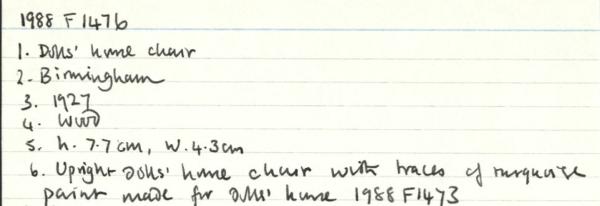 1988 F1476
1. Dolls' house chair
2. Birmingham
3. 1927
4. Wood
5. h. 7.7cm, w. 4.3cm
6. Upright dolls' house chair with traces of turquoise
paint made for dolls' house 1988 F1473